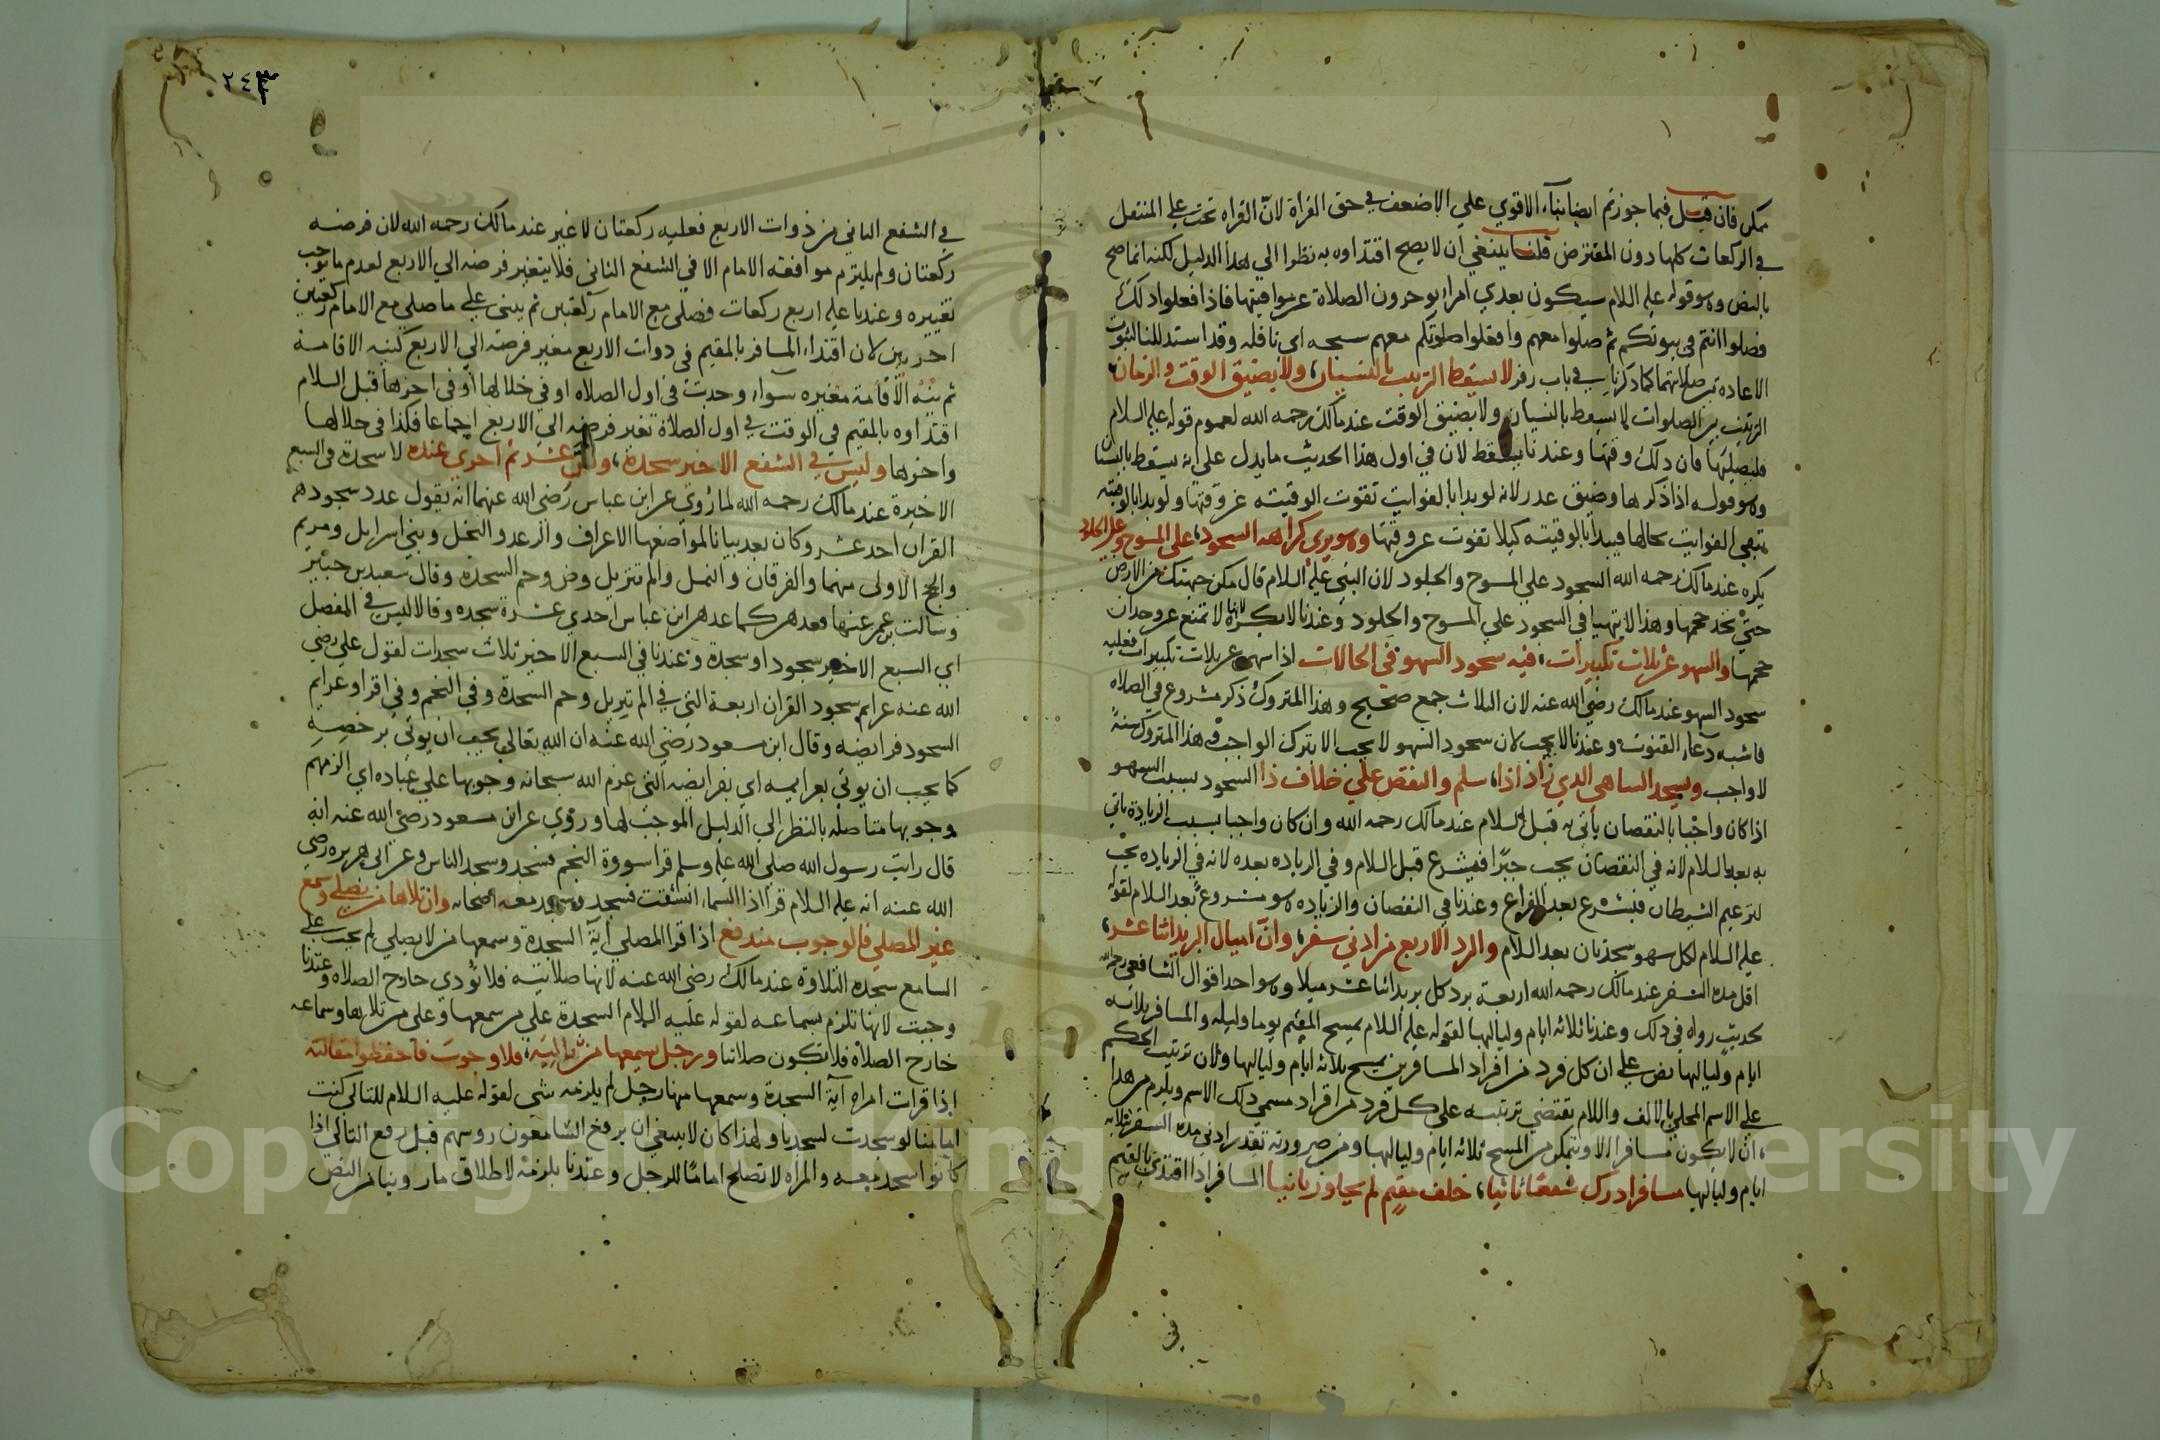 فان قيل فيما جوزتم ايضا بناء الاقوي علي الاضعف في حق القراة لان القراه تجب علي المتنفل
في الركعات كلها دون المفترض قلنا ينبغي ان لا يصح اقتداوه به نظرا الي هذا الدليل لكنه انما صح
بالنص وهو قوله عليه السلام سيكون بعدي امراء يوخرون الصلاة عن مواقيتها فاذا فعلوا ذلك
فصلوا انتم في بيوتكم ثم صلوا معهم واجعلوا صلوتكم معهم سبحه اي نافله وقد استدللنا لثبوت
الاعاده كما ذكرنا في باب زفر لا يسقط الترتيب بالنسيان ولا بضيق الوقت والزمان
الترتيب بين الصلوات لا يسقط بالنسيان ولا بضيق الوقت عند مالك رحمه الله لعموم قوله عليه السلام
فليصليها فان ذلك وقتها وعندنا يسقط لان في اول هذا الحديث ما يدل علي انه يسقط بالنسيان
وهو قوله اذا ذكرها وضيق عذر لانه لو بدا بالفوايت تفوت الوقتيه عن وقتها ولو بدا بالوقتيه
تبقي الفوايت بحالها فيبدا بالوقتيه كيلا تفوت عن وقتها وهو يري كراهه السجود علي المسوح وعلي الجلود
يكره عند مالك رحمه الله السجود علي المسوح والجلود لان النبي عليه السلام قال مكن جبهتك من الارض
حتي تجد حجمها وهذا لا يتهيا في السجود علي المسوح والجلود وعندنا لا يكره لانها لا تمنع عن وجدان
حجمها والسهو عن ثلاث تكبيرات فيه سجود السهو في الحالات اذا سهي عن ثلاث تكبيرات فعليه
سجود السهو عند مالك رضي الله عنه لان الثلاث جمع صحيح وهذا المتروك ذكر مشروع في الصلاه
فاشبه دعاء القنوت وعندنا لا يجب لان سجود السهو لا يجب الا بترك الواجب وهذا المتروك سنة
لا واجب ويسجد الساهي الذي زاد اذا سلم والنقص علي خلاف ذا السجود بسبب السهو
اذا كان واجبا بالنقصان ياتي به قبل السلام عند مالك رحمه الله وان كان واجبا بسبب الزيادة ياتي
به بعد السلام لانه في النقصان يجب جبرا فيشرع قبل السلام وفي الزياده بعده لانه في الزياده يجب
لترغيم الشيطان فيشرع بعد الفراغ وعندنا في النقصان والزياده هو مشروع بعد السلام لقوله
عليه السلام لكل سهو سجدتان بعد السلام والبرد الاربع من ادني سفر وان اميال البريد اثنا عشر
اقل مده السفر عند مالك رحمه الله اربعة برد كل بريد اثنا عشر ميلا وهو احد اقوال الشافعي رحمه الله
بحديث رواه في ذلك وعندنا ثلاثه ايام ولياليها لقوله عليه السلام يمسح المقيم يوما وليله والمسافر ثلاثه
ايام ولياليها نص علي ان كل فرد من افراد المسافرين يمسح ثلاثه ايام ولياليها ولان ترتيب الحكم
علي الاسم المحلي بالالف واللام يقتضي ترتيبه علي كل فرد من افراد مسمي ذلك الاسم ويلزم من هذا
ان لا يكون مسافر الا ويتمكن من المسح ثلاثه ايام ولياليها ومن ضرورته تقدير ادني مدة السفر بثلاثه
ايام ولياليها مسافر ادرك شفعا ثانيا خلف مقيم لم يجاوز ثانيا المسافر اذا اقتدي بالمقيم
٢٤٣
في الشفع الثاني من ذوات الاربع فعليه ركعتان لا غير عند مالك رحمه الله لان فرضه
ركعتان ولم يلتزم موافقه الامام الا في الشفع الثاني فلا يتغير فرضه الي الاربع لعدم ما يوجب
تغييره وعندنا عليه اربع ركعات فصلي مع الامام ركعتين ثم يبني علي ما صلي مع الامام ركعتين
اخريين لان اقتداء المسافر بالمقيم في ذوات الاربع مغير فرضه الي الاربع كنيه الاقامة
ثم نية الاقامة مغيره سواء وجدت في اول الصلاه او في خلالها او في اخرها قبل السلام
اقتداوه بالمقيم في الوقت في اول الصلاة تغير فرضه الي الاربع اجماعا فكذا في خلالها
واخرها وليس في الشفع الاخير سجدة عشر ثم احري عنده لا سجدة في السبع
الاخيرة عند مالك رحمه الله لما روي عن ابن عباس رضي الله عنهما انه يقول عدد سجود
القران احد عشر وكان يعد بيانا لمواضعها الاعراف والرعد والنحل وبني اسرايل ومريم
والحج الاولي منهما والفرقان والنمل والم تنزيل وص وحم السجدة وقال سعيد بن جبير
وسالت بن عمر عنها فعدهن كما عدهن ابن عباس احدي عشرة سجده وقالا ليس في المفصل
اي السبع الاخير سجود او سجدة وعندنا في السبع الاخير ثلاث سجدات لقول علي رضي
الله عنه عزايم سجود القران اربعة التي في الم تنزيل وحم السجدة وفي النجم وفي اقرا وعزايم
السجود فرايضه وقال ابن مسعود رضي الله عنه ان الله تعالي يحب ان يوتي برخصه
كما يحب ان يوتي بعزايمه اي بفرايضه التي عزم الله سبحانه وجوبها علي عباده اي الزمهم
وجوبها متاصله بالنظر الي الدليل الموجب لها وروي عن ابن مسعود رضي الله عنه انه
قال رايت رسول الله صلي الله عليه وسلم قرا سورة النجم فسجد وسجد الناس وعن ابي هريره رضي
الله عنه انه عليه السلام قرا اذا السماء انشقت فسجد وسجد معه اصحابه وان تلاها من يصلي وسمع
غير المصلي فالوجوب مندفع اذا قرا المصلي اية السجدة وسمعها من لا يصلي لم يجب علي
السامع سجده التلاوة عند مالك رضي الله عنه لانها صلاتيه فلا تودي خارج الصلاه وعندنا
وجبت لانها تلزم بسماعه لقوله عليه السلام السجدة علي من سمعها وعلي من تلاها وسماعه
خارج الصلاة فلا تكون صلاتنا ورجل يسمعها من تاليه فلا وجوب فاحفظوا مقالته
اذا قرات امراه آية السجدة وسمعها منها رجل لم يلزمه شي لقوله عليه السلام للتالي كنت
امامنا لو سجدت لسجدنا ولهذا كان لا ينبغي ان يرفع السامعون روسهم قبل رفع التالي اذا
كانوا سجد معه والمراه لا تصلح اماما للرجل وعندنا يلزمه لاطلاق ما روينا من النص
Copyright © King Saud University